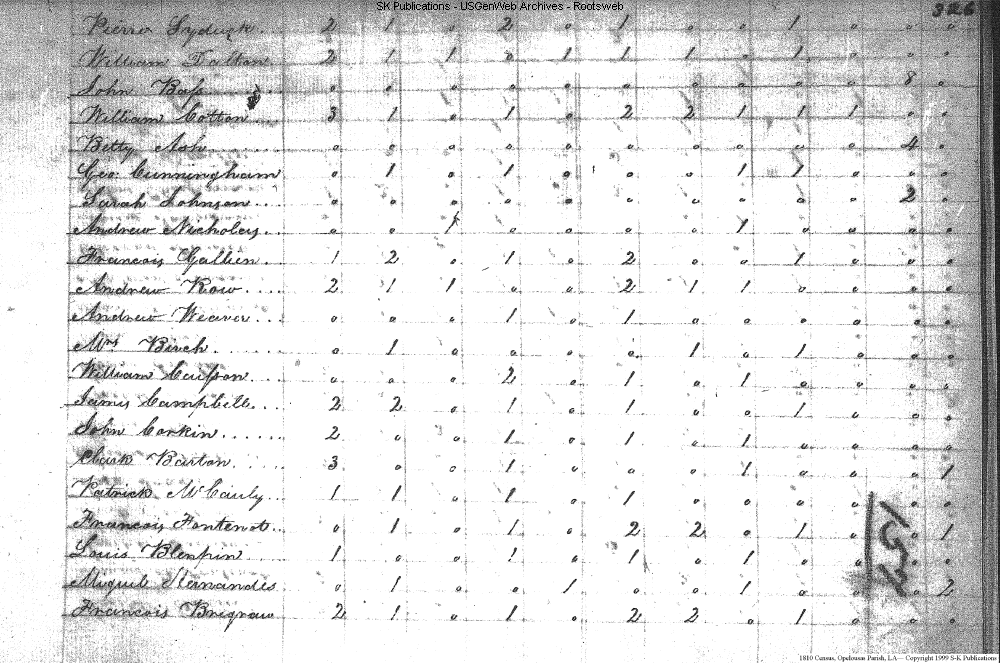 SK Publications - USGenWeb Archives - Rootsweb
326
Pierre 2 1 0 2 0 1 0 0 1 0 0 0
William Dalton 2 1 1 0 1 1 1 0 1 0 0 0
John Bass 0 0 0 0 0 0 0 0 0 0 8 0
William Cotton 3 1 0 1 0 2 2 1 1 1 0 0
Betty Ash 0 0 0 0 0 0 0 0 0 0 4 0
Geo. Cunningham 0 1 0 1 0 0 0 1 1 0 0 0
Sarah Johnson 0 0 0 0 0 0 0 0 0 0 2 0
Andrew Nicholas 0 0 1 0 0 0 0 1 0 0 0 0
Francois Gallien 1 2 0 1 0 2 0 0 1 0 0 0
Andrew Row 2 1 1 0 0 2 1 1 0 0 0 0
Andrew Weaver 0 0 0 1 0 1 0 0 0 0 0 0
Mrs Birch 0 1 0 0 0 0 1 0 1 0 0 0
William 0 0 0 2 0 1 0 1 0 0 0 0
James Campbell 2 2 0 1 0 1 0 0 1 0 0 0
John Corkin 2 0 0 1 0 1 0 1 0 0 0 0
Clark Barton 3 0 0 1 0 0 0 1 0 0 0 1
Patrick McCauly 1 1 0 1 0 1 0 0 0 0 0 0
Francois Fontenot 0 1 0 1 0 2 2 0 1 0 0 1
Louis 1 0 0 1 0 1 0 1 0 0 0 0
Miguil Hernandes 0 1 0 0 1 0 0 1 0 0 0 2
Francois 2 1 0 1 0 2 2 0 1 0 0 0
1810 Census, Opelousas Parish, LA -- Copyright 1999 S-K Publications